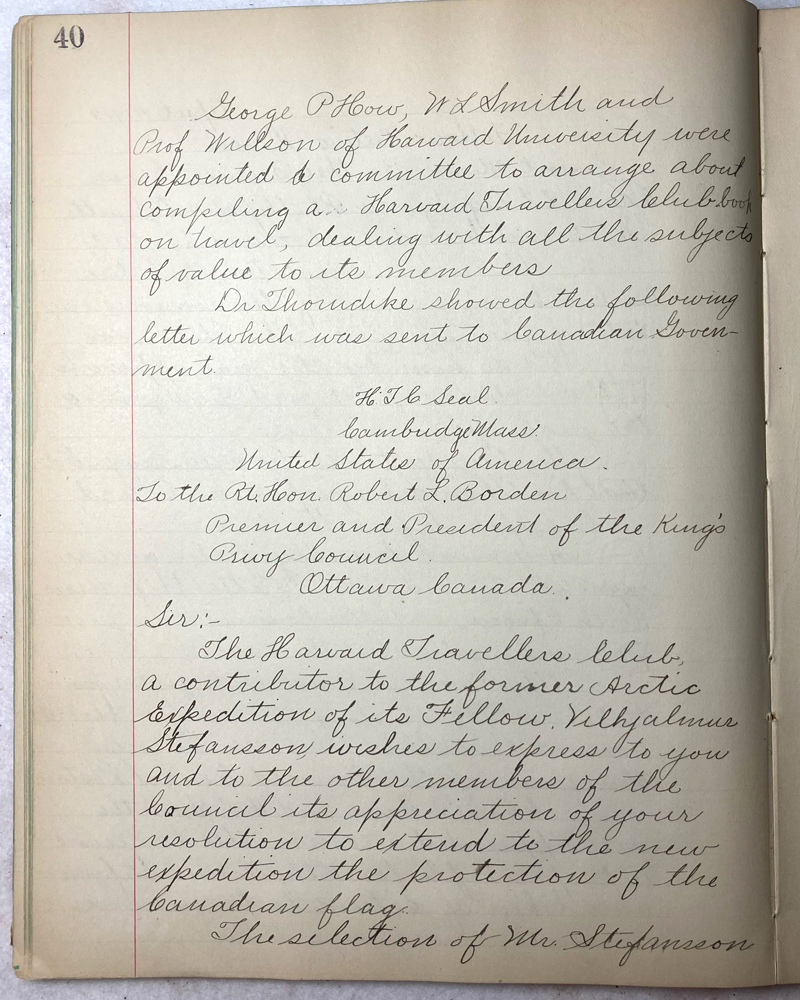 40
George P How, W L Smith and
Prof Willson of Harvard University were
appointed a committee to arrange about
compiling a Harvard Travellers Club book
on travel, dealing with all the subjects
of value to its members
Dr Thorndike showed the following
letter which was sent to Canadian Goven-
ment.
H. T C Seal
Cambridge Mass.
United States of America.
To the Rt. Hon. Robert L. Borden
Premier and President of the King's
Privy Council.
Ottawa Canada.
Sir:-
The Harvard Travellers Club,
a contributor to the former Arctic
Expedition of its Fellow, Vilhjalmur
Stefansson, wishes to express to you
and to the other members of the
Council its appreciation of your
resolution to extend to the new
expedition the protection of the
Canadian flag.
The selection of Mr. Stefansson